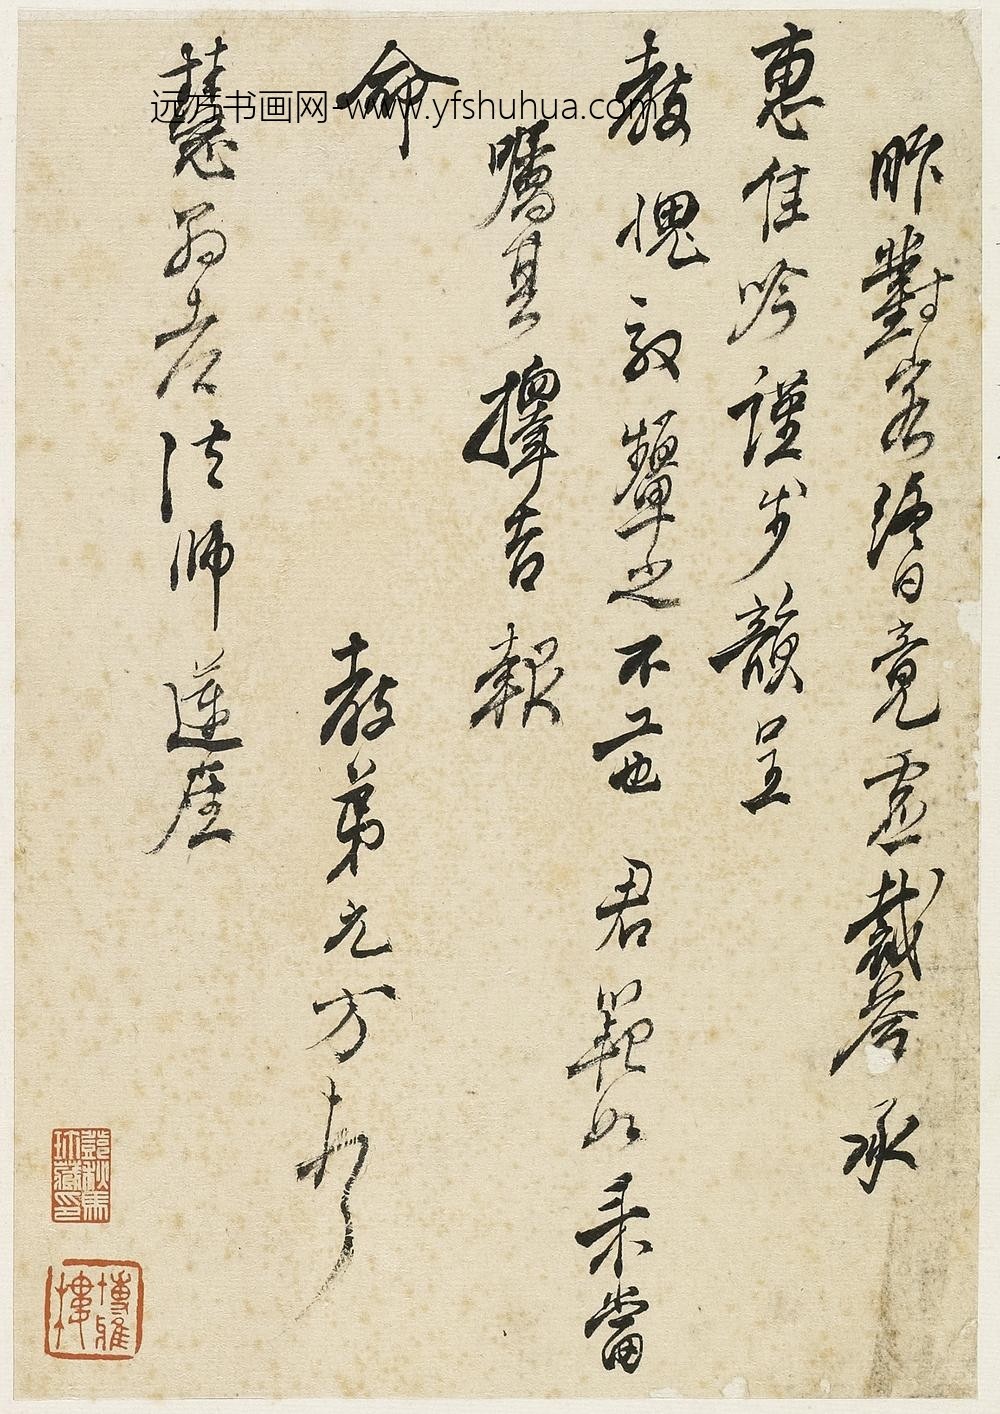 昨對客終日竟虛裁答承
惠佳吟謹步韻呈
教愧效顰之不工也君範如来當
囑其擇吉報
命
教弟元方頓
慧翁老法師蓮座
鄧秋馬
珎藏印
博雅
樓
远方书画网-www.yfshuhua.com